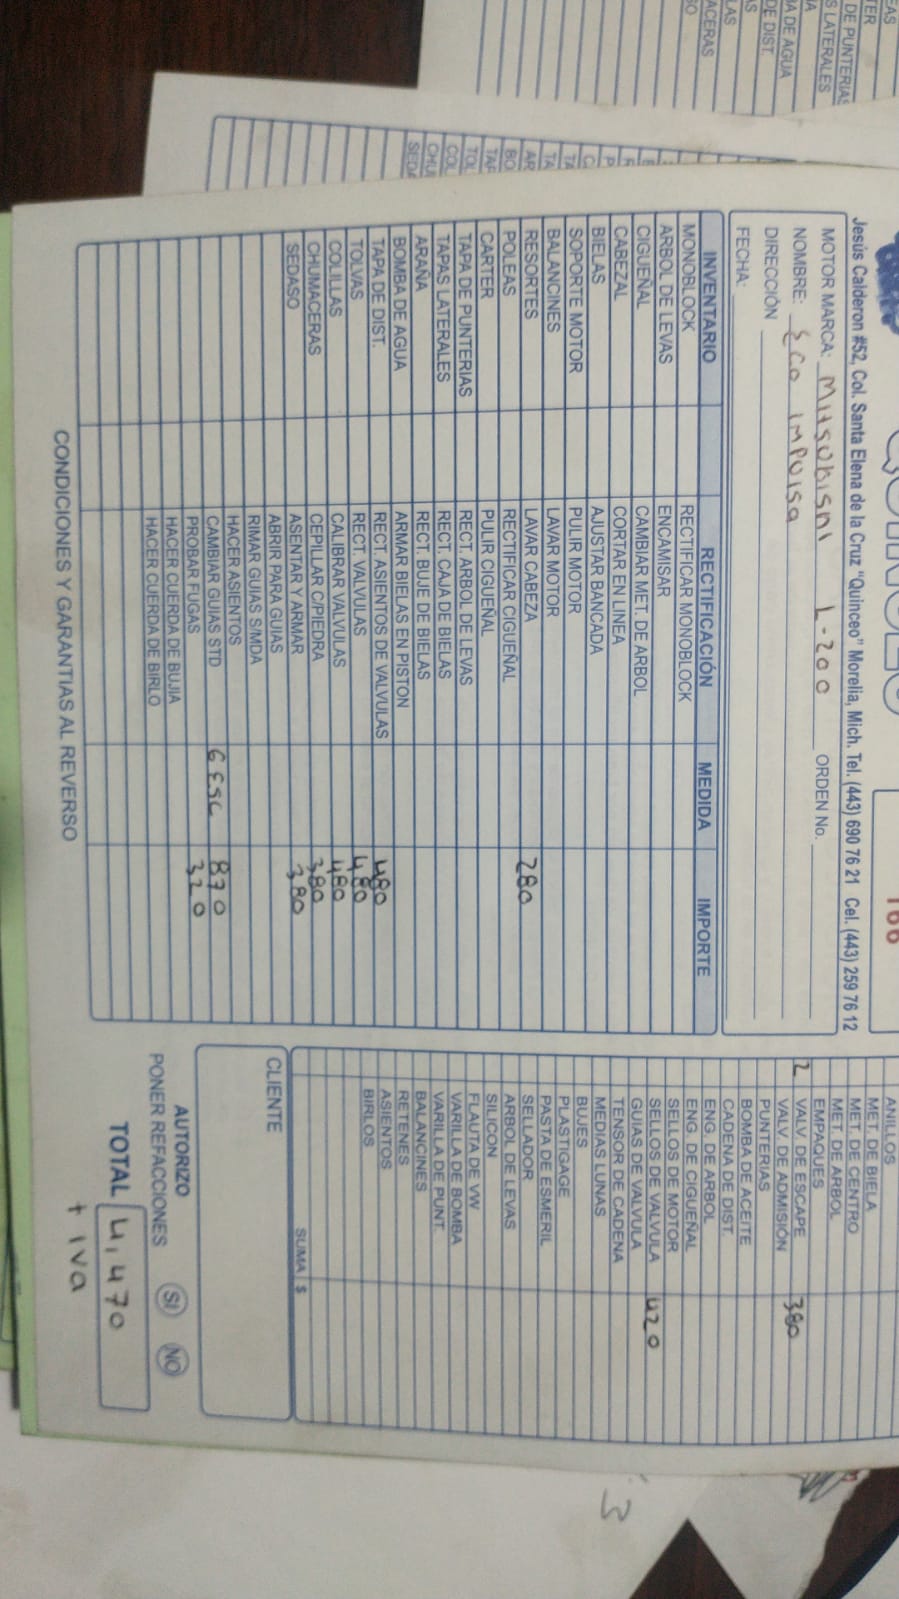 166
Jesús Calderon #52, Col. Santa Elena de la Cruz "Quinceo" Morelia, Mich. Tel. (443) 690 76 21 Cel. (443) 259 76 12
MOTOR MARCA: Mitsubishi L-200 ORDEN No.
NOMBRE: Eco impulsa
DIRECCIÓN
FECHA:
INVENTARIO RECTIFICACIÓN MEDIDA IMPORTE
MONOBLOCK RECTIFICAR MONOBLOCK
ARBOL DE LEVAS ENCAMISAR
CIGUEÑAL CAMBIAR MET. DE ARBOL
CABEZAL CORTAR EN LINEA
BIELAS AJUSTAR BANCADA
SOPORTE MOTOR PULIR MOTOR
BALANCINES LAVAR MOTOR
RESORTES LAVAR CABEZA 280
POLEAS RECTIFICAR CIGUEÑAL
CARTER PULIR CIGUEÑAL
TAPA DE PUNTERIAS RECT. ARBOL DE LEVAS
TAPAS LATERALES RECT. CAJA DE BIELAS
ARAÑA RECT. BUJE DE BIELAS
BOMBA DE AGUA ARMAR BIELAS EN PISTON
TAPA DE DIST. RECT. ASIENTOS DE VALVULAS 480
TOLVAS RECT. VALVULAS 480
COLILLAS CALIBRAR VALVULAS 480
CHUMACERAS CEPILLAR C/PIEDRA 380
SEDASO ASENTAR Y ARMAR 380
ABRIR PARA GUIAS
RIMAR GUIAS S/MDA
HACER ASIENTOS
CAMBIAR GUIAS STD 6 ESC 870
PROBAR FUGAS 320
HACER CUERDA DE BUJIA
HACER CUERDA DE BIRLO
CONDICIONES Y GARANTIAS AL REVERSO
ANILLOS
MET. DE BIELA
MET. DE CENTRO
MET. DE ARBOL
EMPAQUES
2 VALV. DE ESCAPE 380
VALV. DE ADMISIÓN
PUNTERIAS
BOMBA DE ACEITE
CADENA DE DIST.
ENG. DE ARBOL
ENG. DE CIGUEÑAL
SELLOS DE MOTOR
SELLOS DE VALVULA 420
GUIAS DE VALVULA
TENSOR DE CADENA
MEDIAS LUNAS
BUJES
PLASTIGAGE
PASTA DE ESMERIL
SELLADOR
ARBOL DE LEVAS
SILICON
FLAUTA DE VW
VARILLA DE BOMBA
VARILLA DE PUNT.
BALANCINES
RETENES
ASIENTOS
BIRLOS
SUMA $
CLIENTE
AUTORIZO
PONER REFACCIONES SI NO
TOTAL 4,470
+ iva